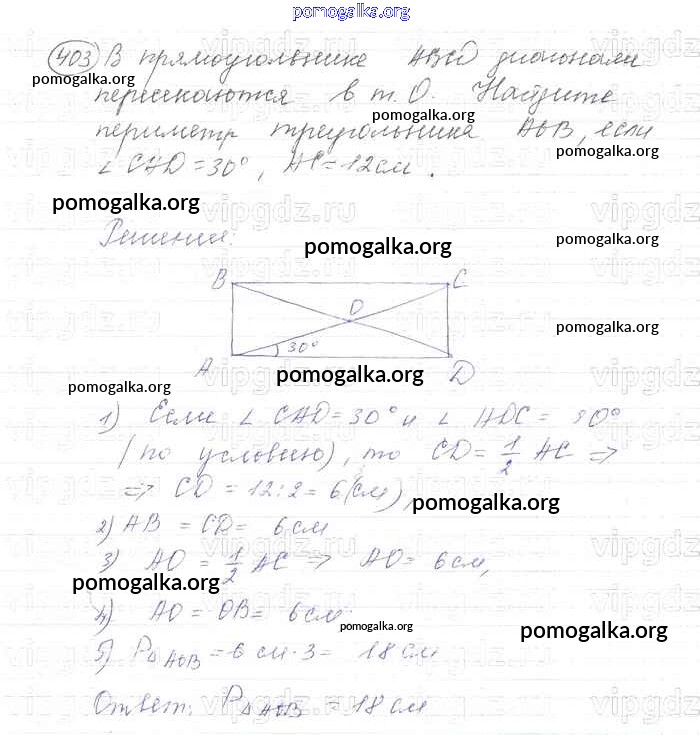 pomogalka.org
403 В прямоугольнике ABCD диагонали
pomogalka.org
пересекаются в т. О. Найдите
pomogalka.org
периметр треугольника АОВ, если
pomogalka.org
∠ CAD = 30°, AC = 12 см.
pomogalka.org
vipgdz.ru
Решение:
pomogalka.org
pomogalka.org
B C
O
pomogalka.org
30°
A D
pomogalka.org
pomogalka.org
1) Если ∠ CAD = 30° и ∠ ADC = 90°
(по условию), то CD = 1/2 AC ⇒
⇒ CD = 12 : 2 = 6 (см),
pomogalka.org
2) AB = CD = 6 см
3) AO = 1/2 AC ⇒ AO = 6 см,
pomogalka.org
4) AO = OB = 6 см.
pomogalka.org
pomogalka.org
5) P△AOB = 6 см · 3 = 18 см
Ответ: P△AOB = 18 см